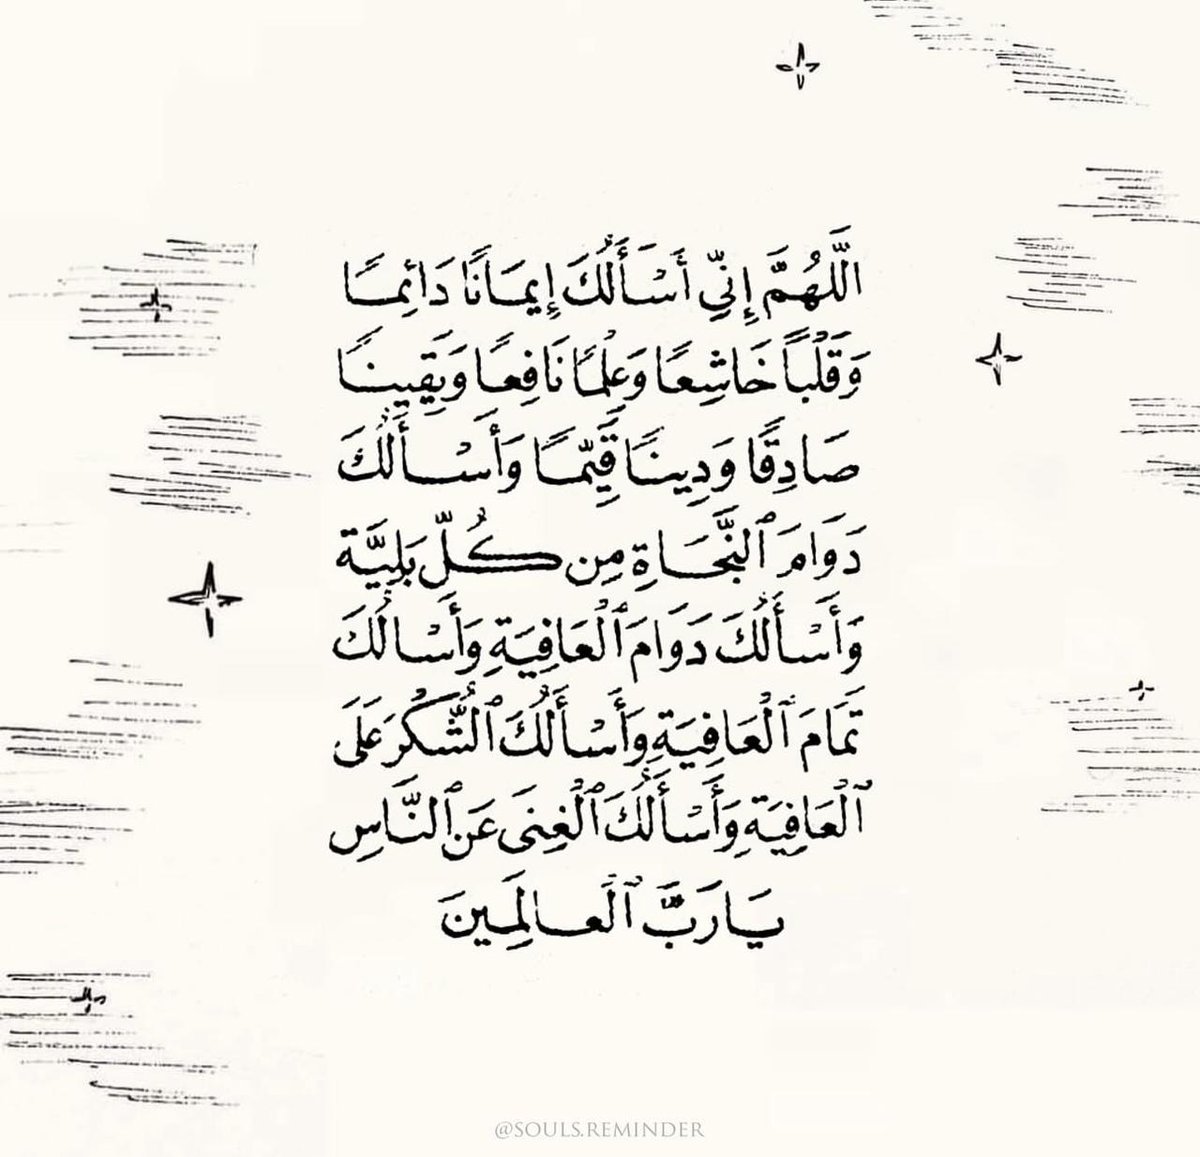 اللَّهُمَّ إِنِّي أَسْأَلُكَ إِيمَانًا دَائِمًا
وَقَلْبًا خَاشِعًا وَعِلْمًا نَافِعًا وَيَقِينًا
صَادِقًا وَدِينًا قَيِّمًا وَأَسْأَلُكَ
دَوَامَ ٱلنَّجَاةِ مِن كُلِّ بَلِيَّة
وَأَسْأَلُكَ دَوَامَ ٱلْعَافِيَةِ وَأَسْالُكَ
تَمَامَ ٱلْعَافِيَةِ وَأَسْأَلُكَ ٱلشُّكْرَ عَلَى
ٱلْعَافِيَةِ وَأَسْأَلُكَ ٱلْغِنَى عَنِ ٱلنَّاسِ
يَارَبَّ ٱلْعَالَمِينَ
@SOULS.REMINDER